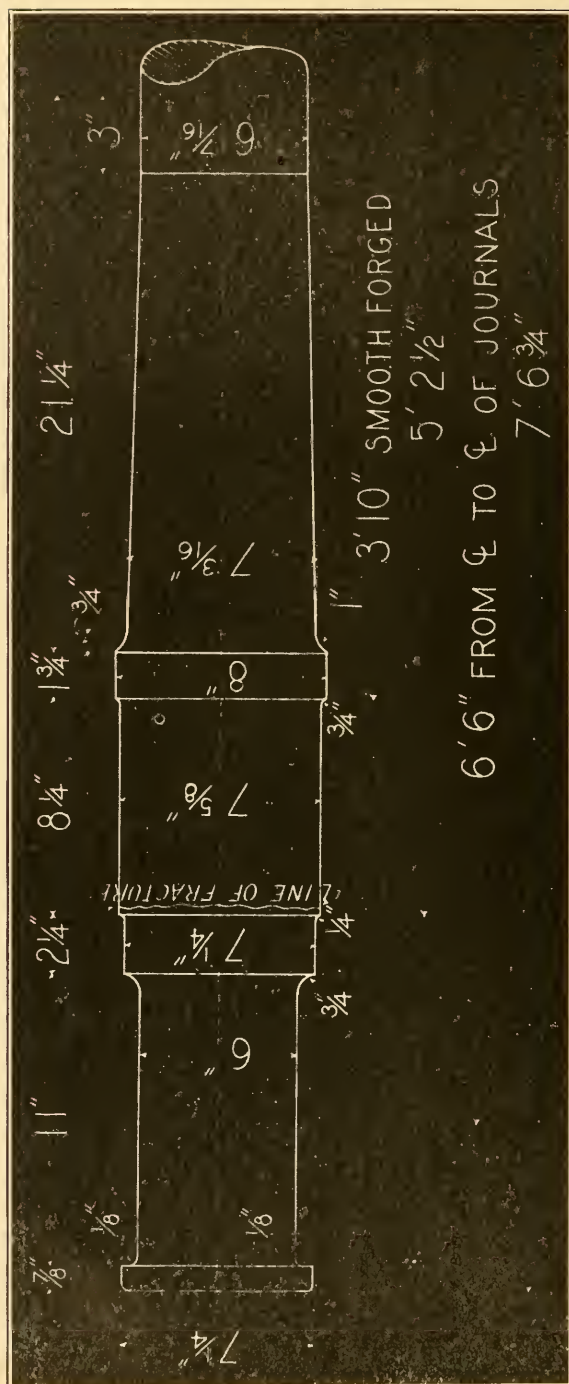 3"
6 7/16"
21 1/4"
3/4"
7 3/16"
1"
1 3/4"
8"
3/4"
8 1/4"
7 5/8"
LINE OF FRACTURE
1/4"
2 1/4"
7 1/4"
3/4"
11"
6"
1/8"
1/8"
7/8"
7 1/4"
3'10" SMOOTH FORGED
5' 2 1/2"
6'6" FROM ℄ TO ℄ OF JOURNALS
7' 6 3/4"